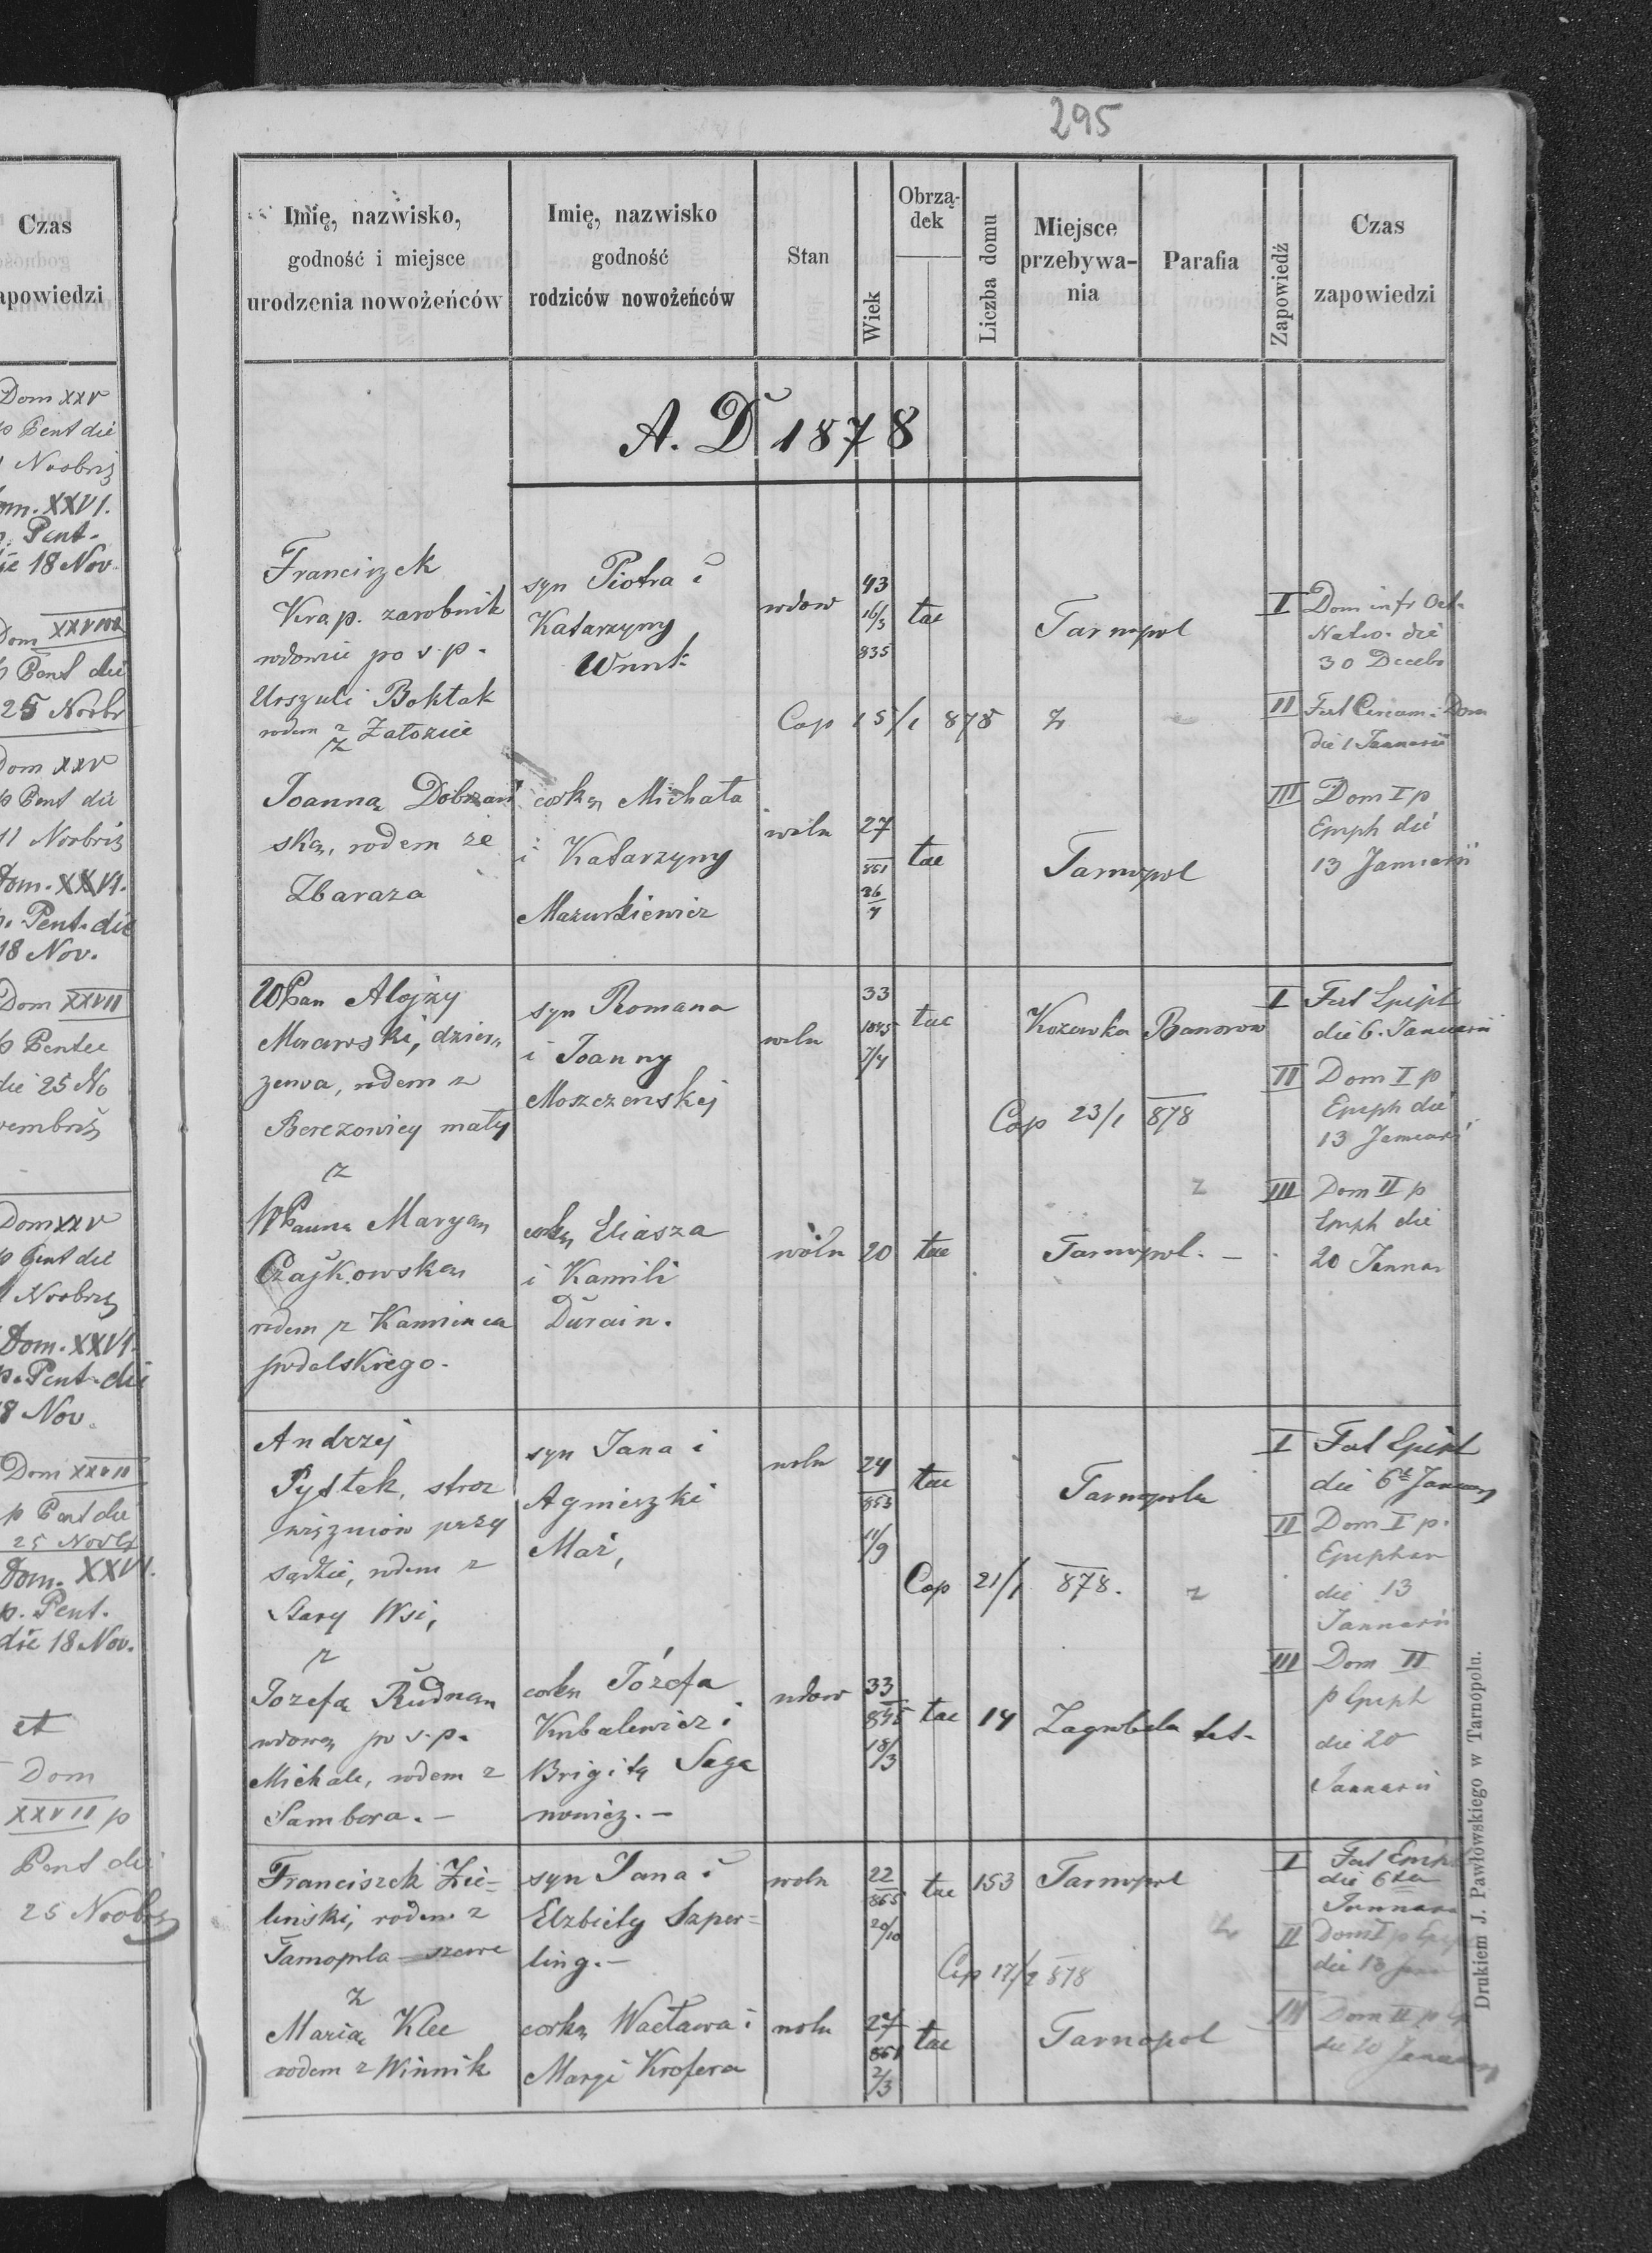 295
Czas
zapowiedzi
Dom XXV
p Pent die
Noobris
Dom. XXVI.
p. Pent.
die 18 Nov.
Dom XXVII
p Pent die
25 Noobr
Dom XXV
p Pent die
11 Noobris
Dom. XXVI.
p. Pent. die
18 Nov.
Dom XXVII
p Pentec
die 25 No
vembris
Dom XXV
p Pent die
Noobris
Dom. XXVI.
p. Pent. die
18 Nov.
Dom XXVII
p Pent die
25 Novbr
Dom. XXVI.
p. Pent.
die 18 Nov.
et
Dom
XXVII p
Pent die
25 Noobris
Imię, nazwisko,
godność i miejsce
urodzenia nowożeńców
Imię, nazwisko
godność
rodziców nowożeńców
Stan
Wiek
Obrzą-
dek
Liczba domu
Miejsce
przebywa-
nia
Parafia
Zapowiedź
Czas
zapowiedzi
A. D 1878
Franciszek
Krap. zarobnik
wdowiec po s. p.
Urszuli Boktak
rodem z Załoziec
syn Piotra i
Katarzyny
Wnuk
wdow
43
16/3
835
tac
Tarnopol
Cap 15/1 878
z
I Dom infr Oct.
Nativ. die
30 Decebr
II Fest Circum. Dom
die 1 Januarii
z
Joanną Dobrzań
ską, rodem ze
Zbaraza
corką Michała
i Katarzyny
Mazurkiewicz
woln
27
851
26
4
tac
Tarnopol
III Dom I p
Epiph die
13 Januarii
WPan Alojzy
rodem z
Berezowicy mały
syn Romana
i Joanny
Moszczenskiej
woln
33
1845
7/4
tac
Kozowka
Cap 23/1 878
I Fest Epiph
die 6. Januarii
II Dom I p
Epiph die
13 Januarii
z
WPanną Maryą
Czajkowską
rodem z Kamienca
podolskiego.
corką Eliasza
i Kamili
Durain.
woln
20
tac
Tarnopol. —
z
III Dom II p
Epiph die
20 Januar
Andrzej
Pystek, stroz
więzniów przy
sądzie, rodem z
Stary Wsi,
syn Jana i
Agnieszki
Maź,
woln
24
853
11/9
tac
Tarnopola
Cap 21/1 878.
z
I Fest Epiph
die 6t Januarij
II Dom I p.
Epiphan
die 13
Januarii
z
Jozefą Rudną
wdową po s. p.
Michale, rodem z
Sambora. —
corką Józefa
Kubalewicz i
Brigitą Saga
nowicz. —
wdow
33
845
18/3
tac
14
Zagrobela
III Dom II
p Epiph
die 20
Januarii
Franciszek Zie=
linski, rodem z
Tarnopola szewc
syn Jana i
Elzbiety Szper=
ling. —
woln
22
855
20/10
tac
153
Tarnopol
Cap 17/2 878
z
I Fest Epiph
die 6ta
Januarii
II Dom I p Epiph
die 13 Janu
z
Marią Klee
rodem z Winnik
corką Wacława i
Maryi Krofera
woln
27
851
2/3
tac
Tarnopol
III Dom II p Ep
die 20 Januarij
Drukiem J. Pawłowskiego w Tarnopolu.